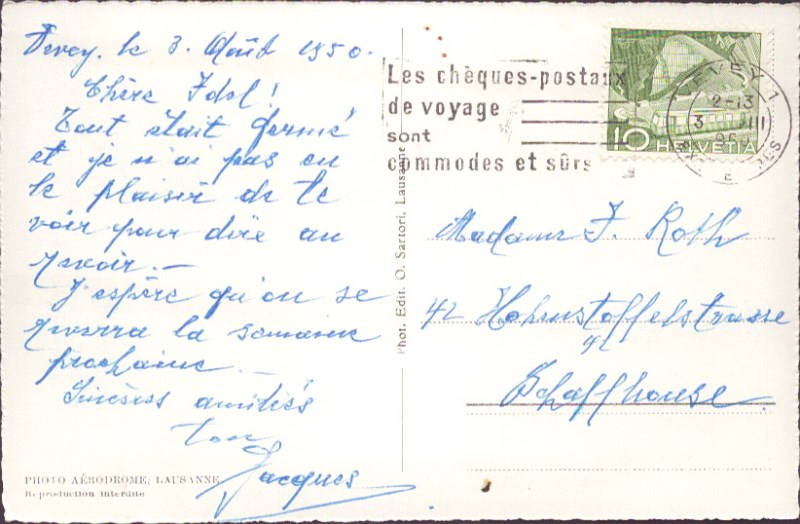 Vevey, le 3. Août 1950.
Chère Idel!
Tout était fermé
et je n'ai pas eu
le plaisir de te
voir pour dire au
revoir.—
J'espère qu'on se
reverra la semaine
prochaine.
Sincères amitiés
ton
Jacques
PHOTO AÉRODROME, LAUSANNE
Reproduction interdite
Phot. Edit. O. Sartori, Lausanne
Les chèques-postaux
de voyage
sont
commodes et sûrs
VEVEY 1
2-13
3 VIII
E
10 HELVETIA
Madame J. Roth
42 Hohenstoffelstrasse
42
Schaffhouse.